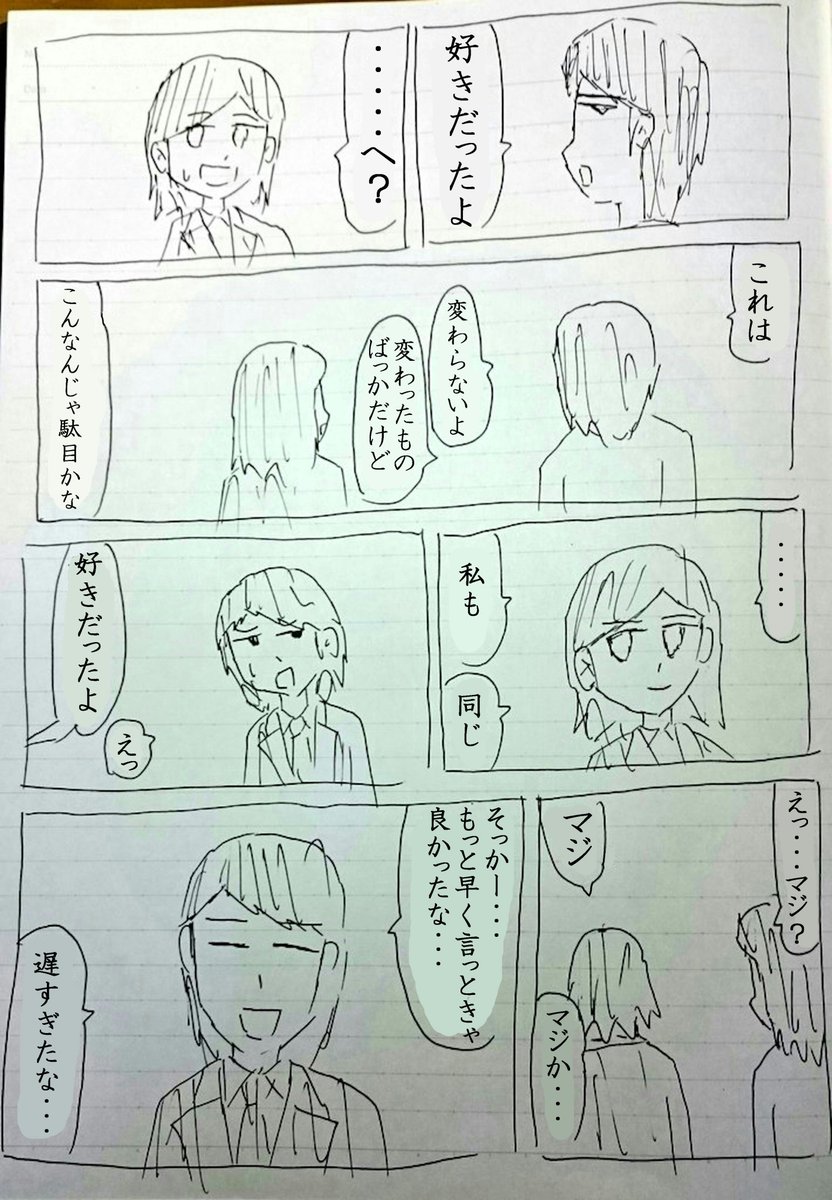 好きだったよ
・・・・・へ？
これは
変わらないよ
変わったもの
ばっかだけど
こんなんじゃ駄目かな
・・・・・・
私も
同じ
好きだったよ
えっ
えっ・・・マジ？
マジ
マジか・・・
そっかー・・・
もっと早く言っときゃ
良かったな・・・
遅すぎたな・・・